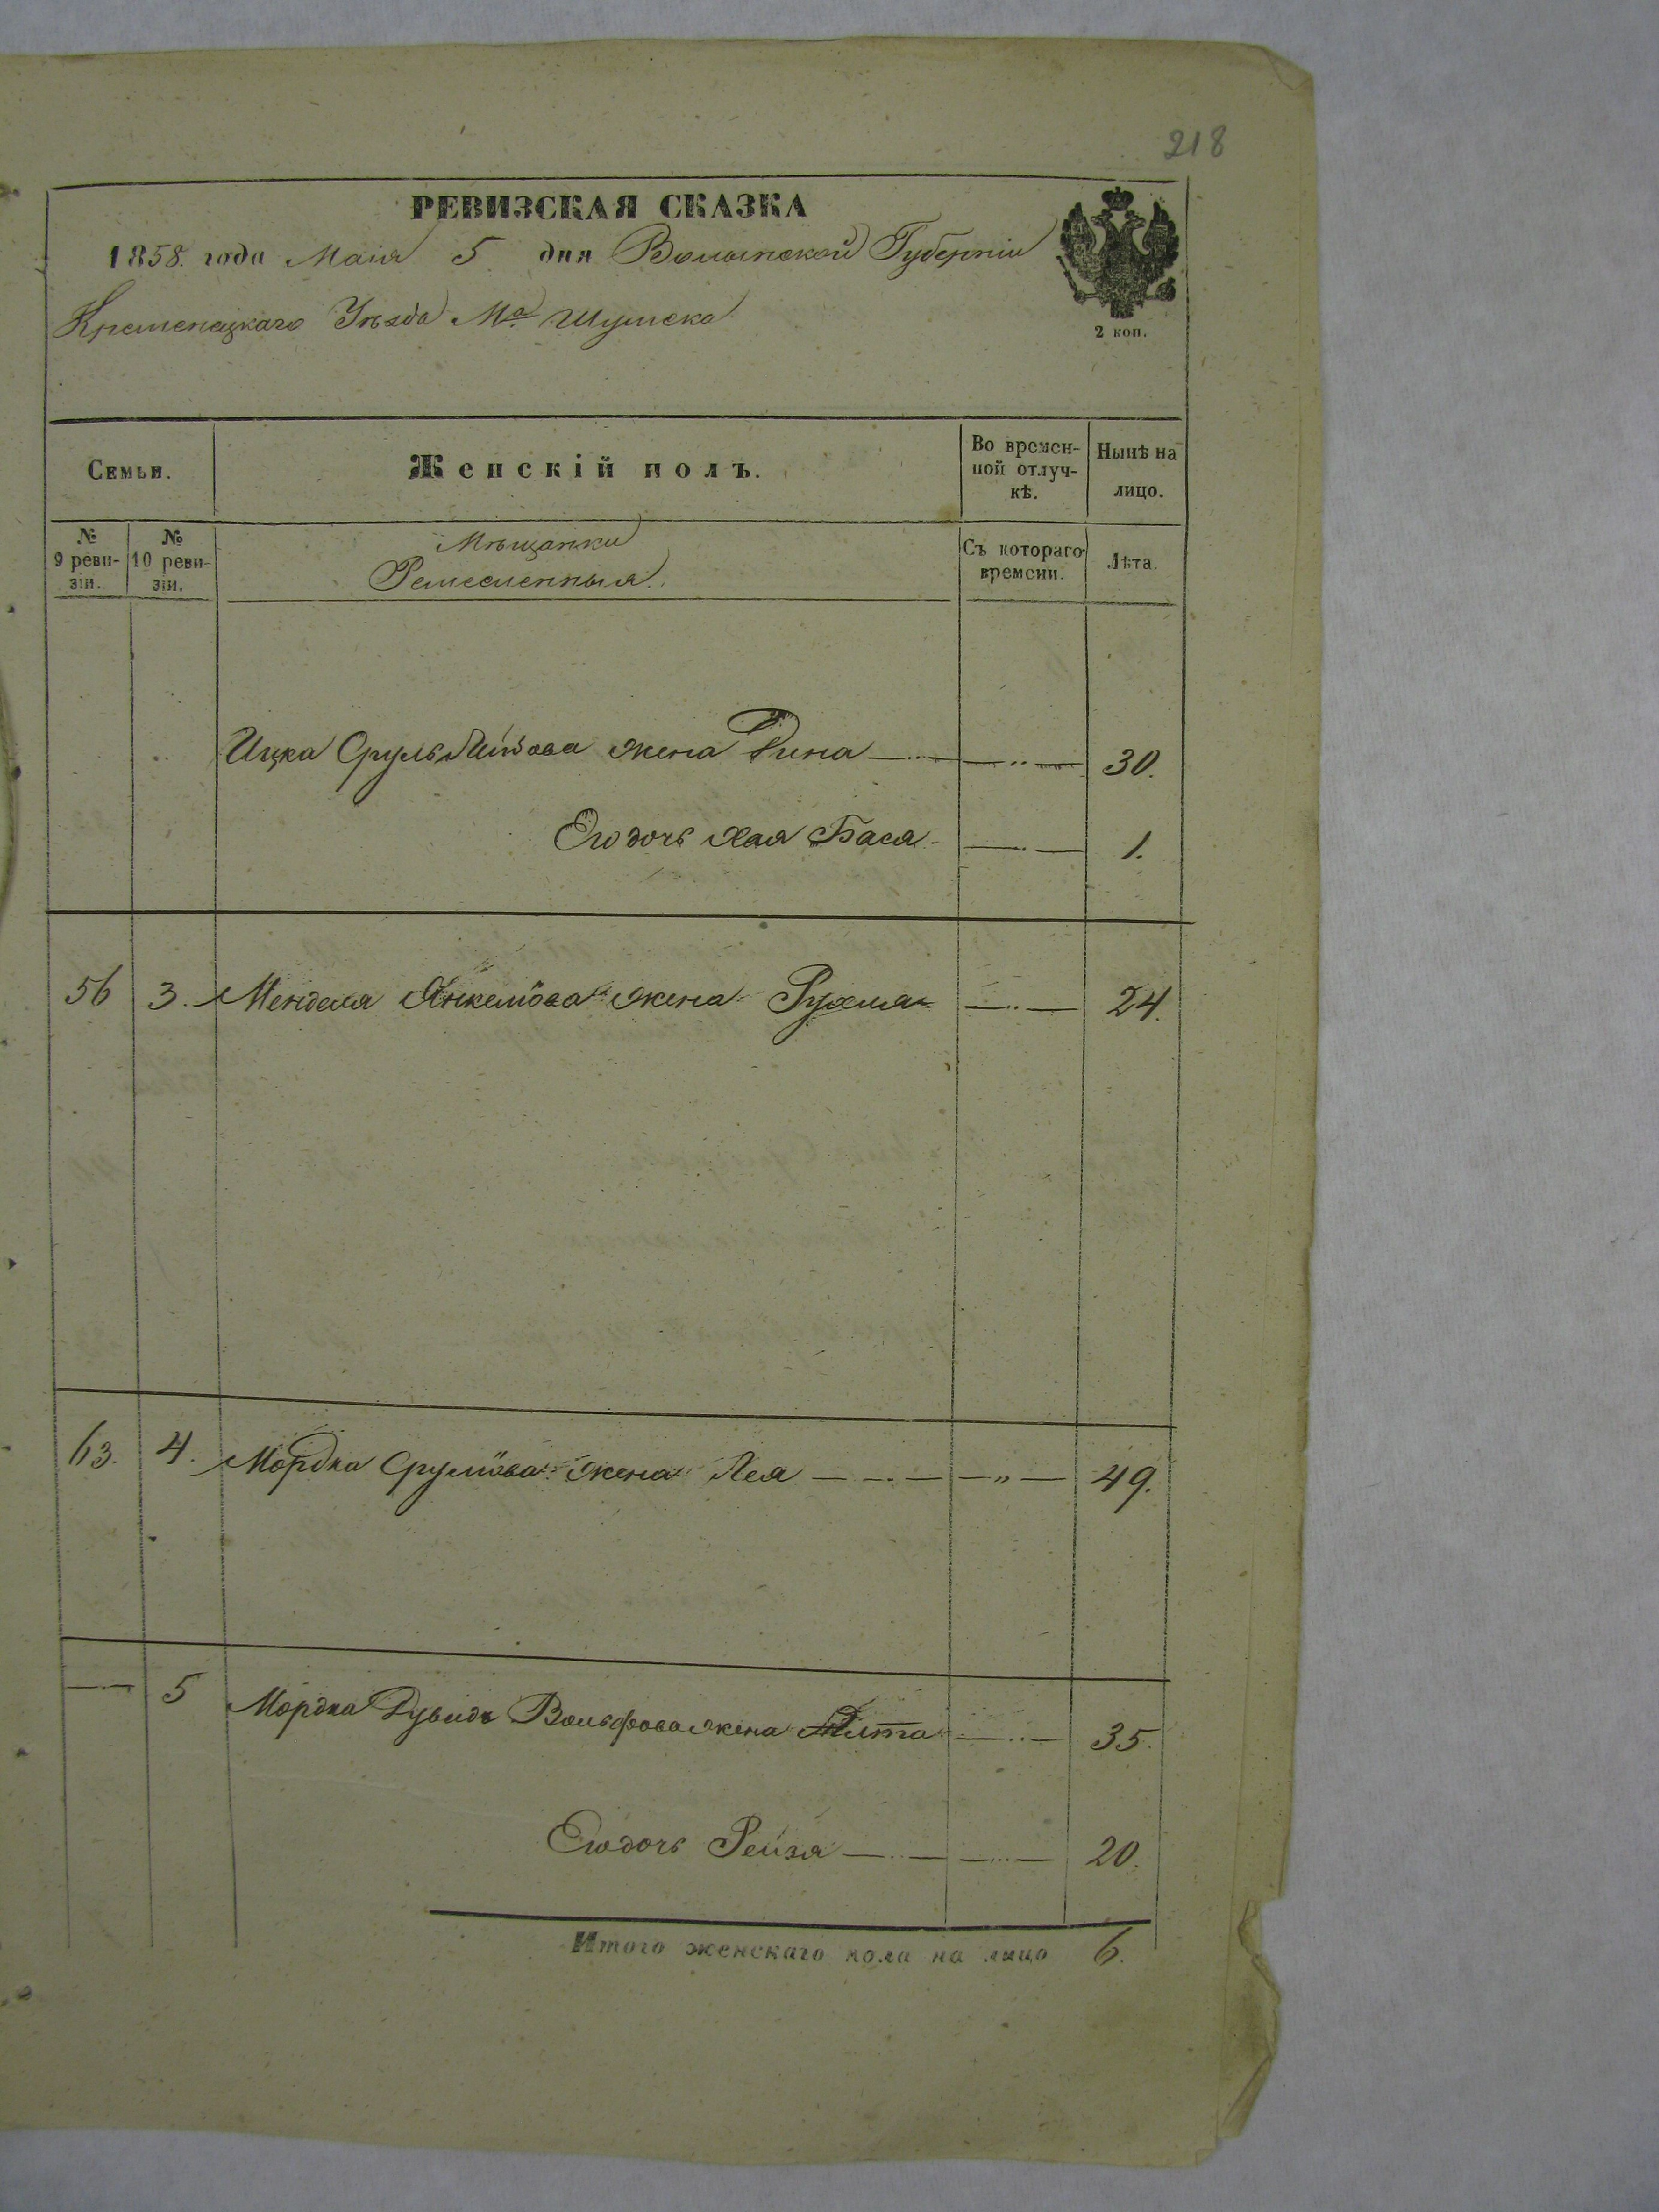 218
РЕВИЗСКАЯ СКАЗКА
1858. года Маія 5 дня Волынской Губерніи
Кременецкаго Уѣзда Мᵃ. Шумска
2 коп.
Семьи.
Женскій полъ.
Во времен-
ной отлуч-
кѣ.
Нынѣ на
лицо.
№
9 реви-
зіи.
№
10 реви-
зіи.
Мѣщанки
Ремесленныя.
Съ котораго
времени.
Лѣта.
Ицка Сруль жена Дина — 30.
Его дочь Хая Бася — 1.
56 3. Менделя Янкелюва жена Рухля — 24.
63. 4. Мордка Срулюва жена Лея — 49.
— 5 Мордка Дувидъ Вольфова жена — 35.
Его дочь Рейзя — 20.
Итого женскаго пола на лицо 6.